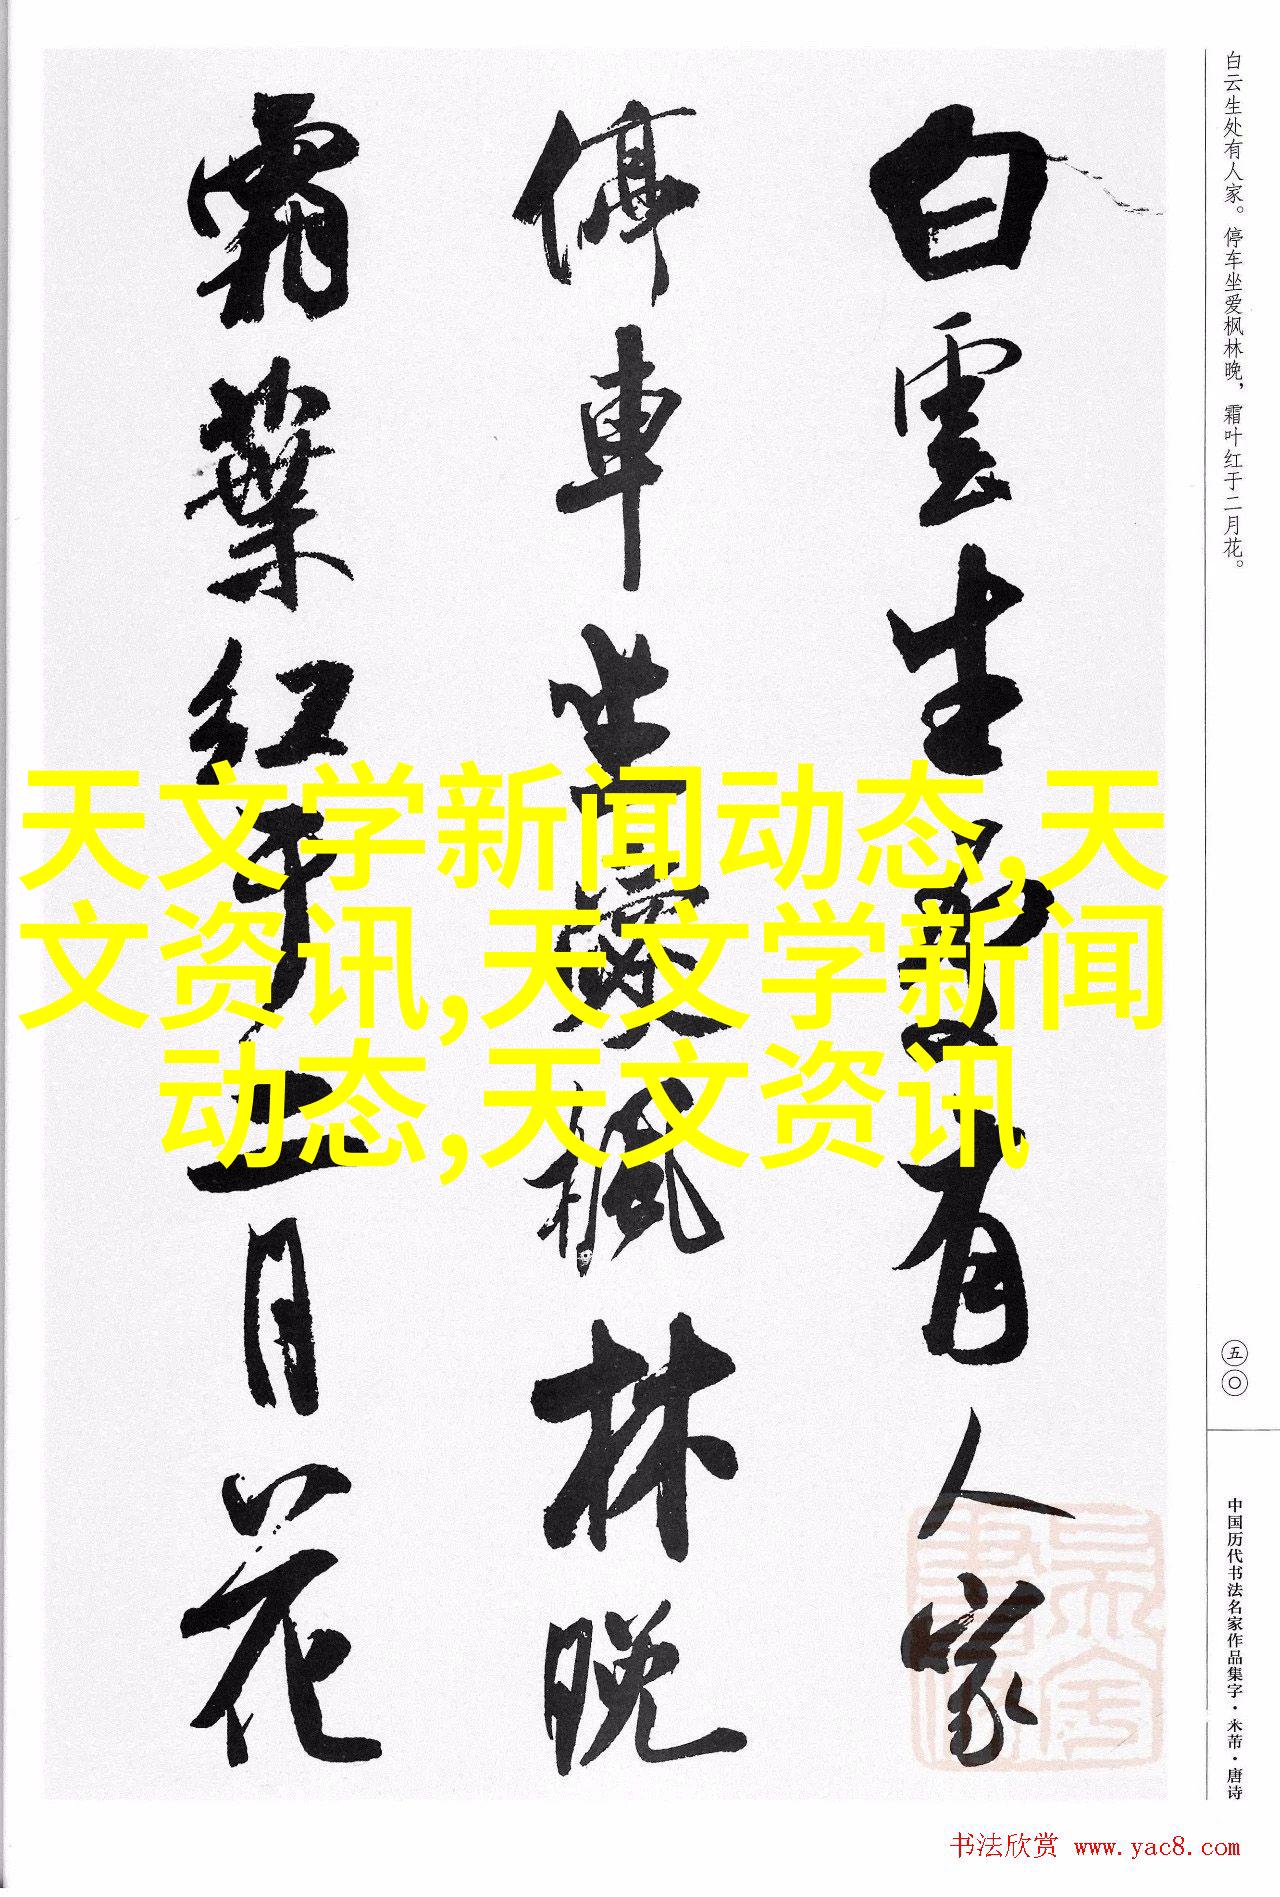 白云生处有人家。停车坐爱枫林晚，霜叶红于二月花。
白雲生處有人家
停車坐愛楓林晚
霜葉紅于二月花
天文学新闻动态,天
文资讯,天文学新闻
动态,天文资讯
五〇
中国历代书法名家作品集字·米芾·唐诗
书法欣赏 www.yac8.com